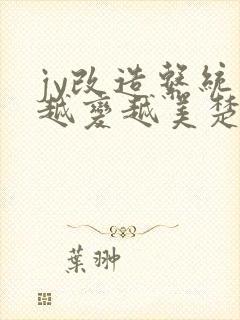 jy改造系統
越變越美楚
葉翀